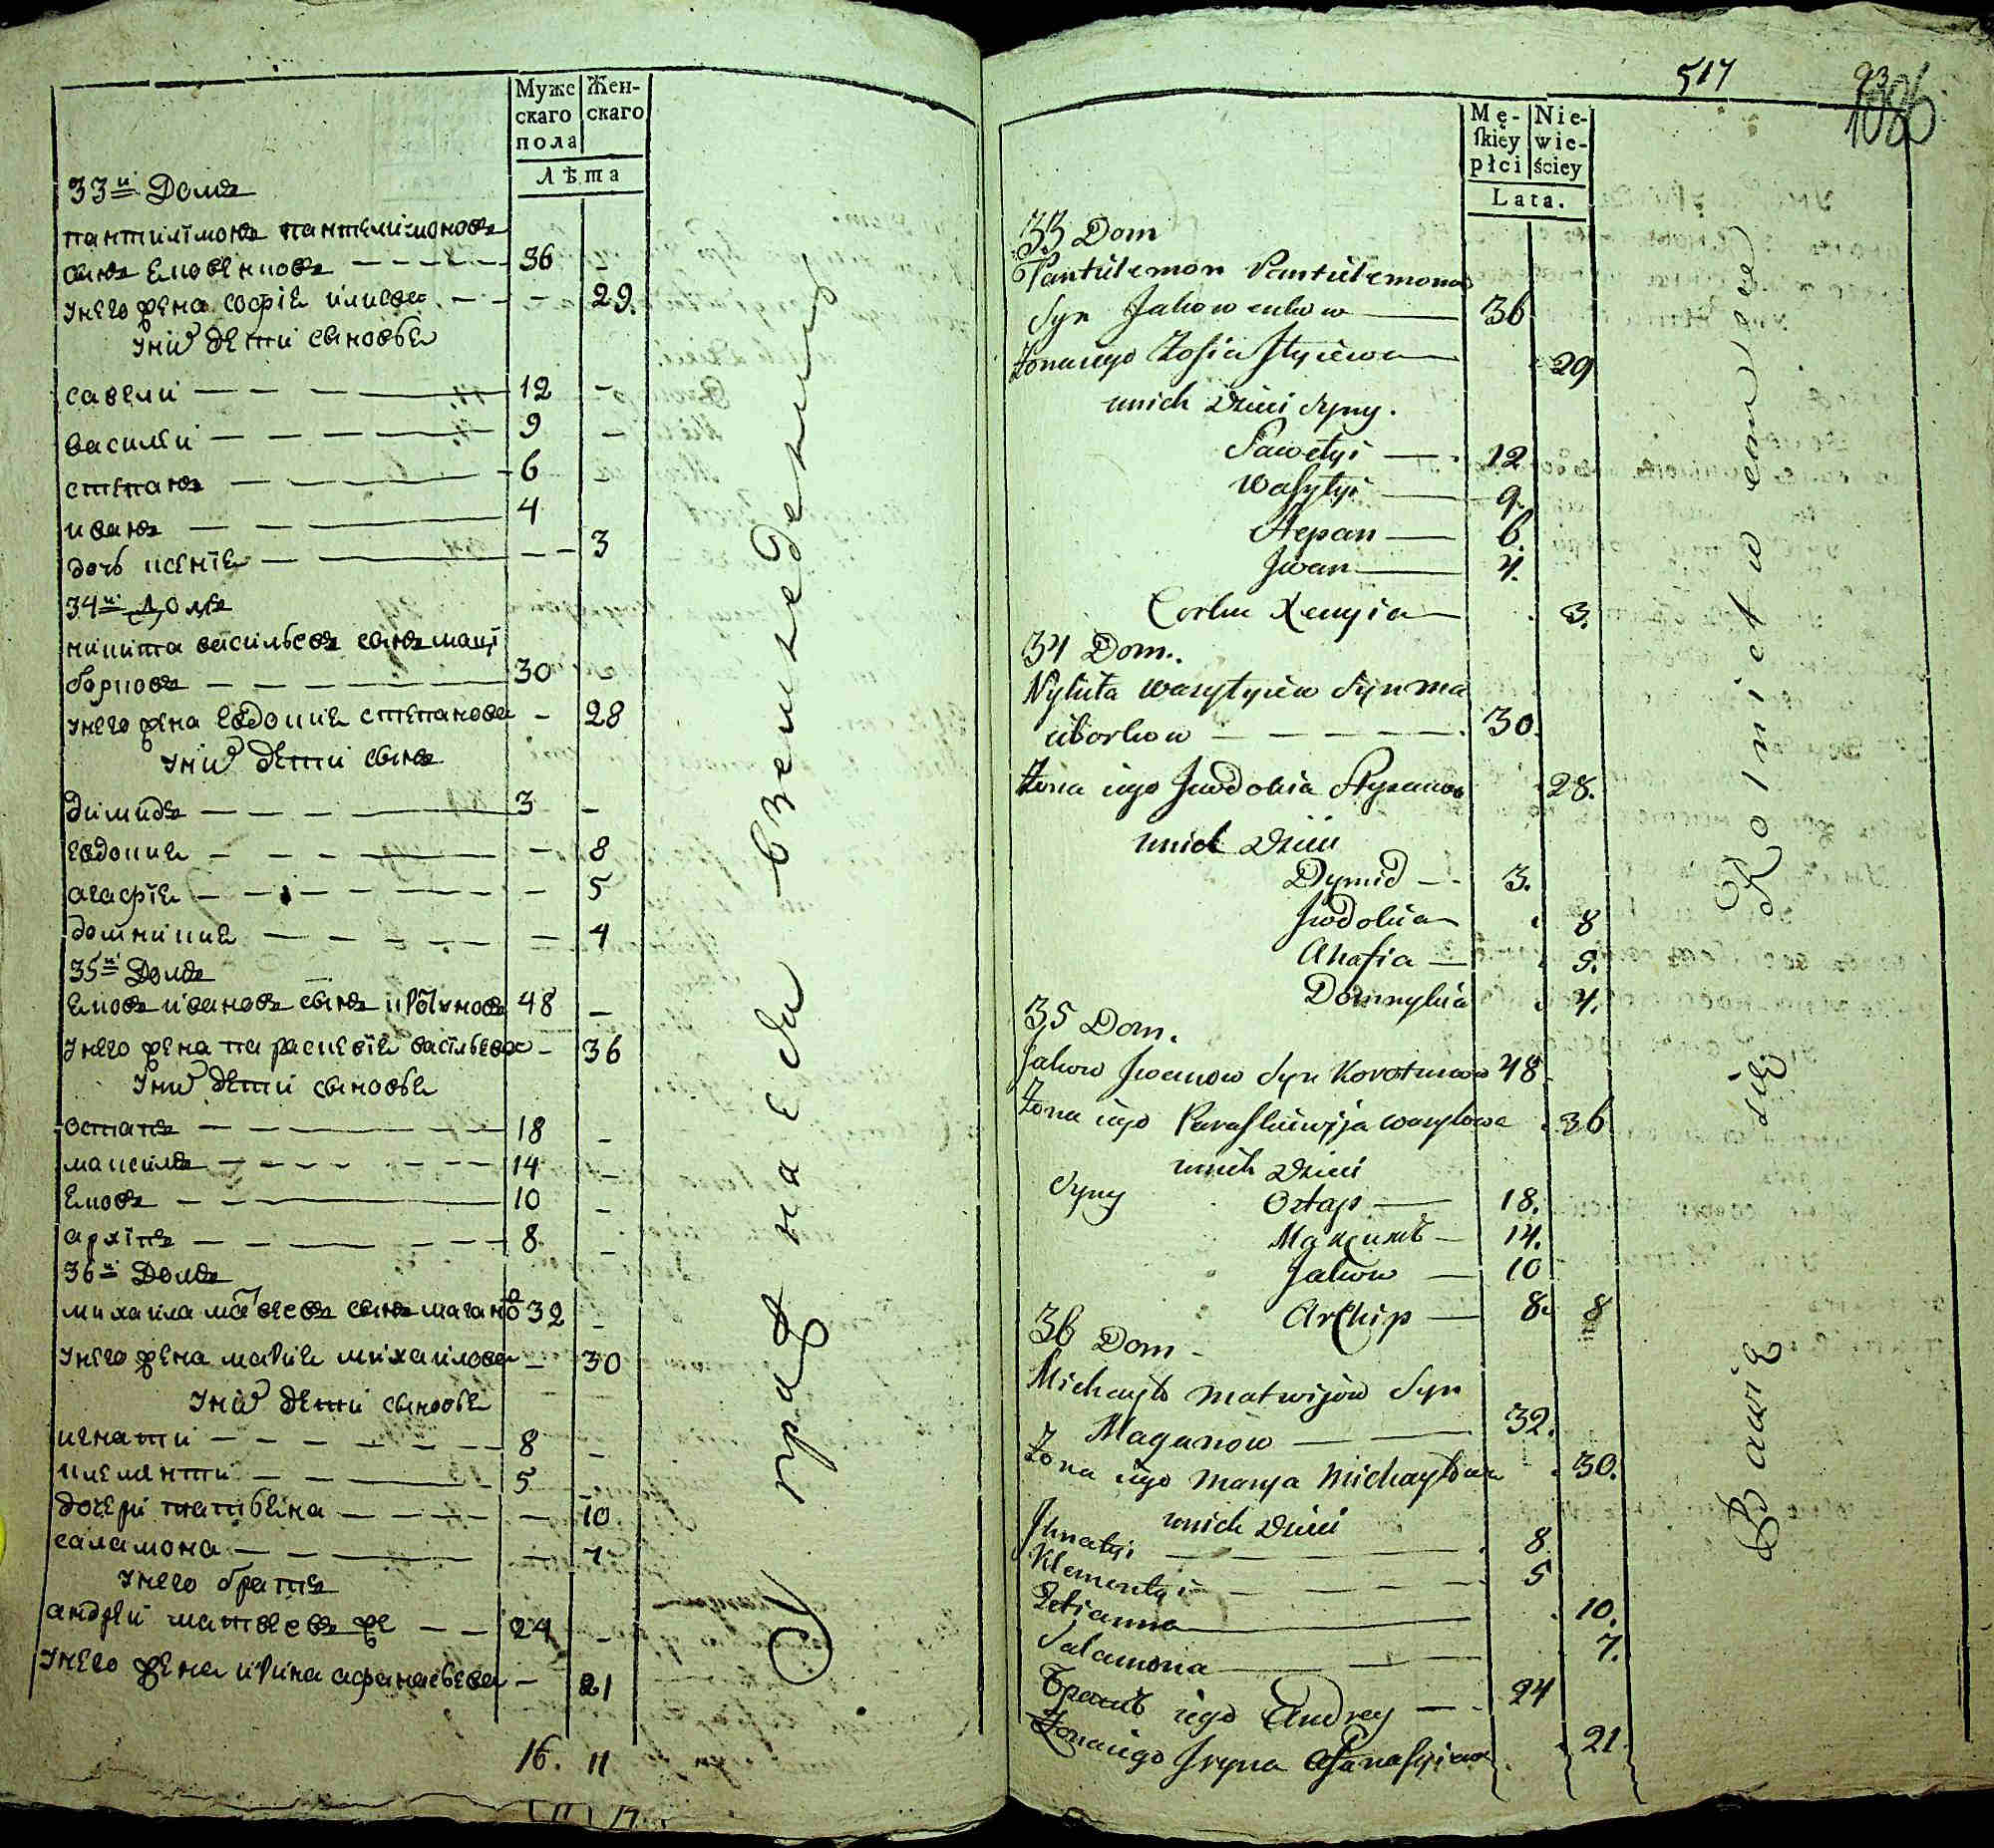 Муже
скаго
пола
Жен-
скаго
Лѣта
33й Домъ
пантилімонъ пантелимоновъ
сынъ яковенковъ — 36 —
унего жена софія — 29.
унихъ дети сыновья
савели — 12 —
василии — 9 —
степанъ — 6
иванъ — 4
дочь ксенія — 3
34й Домъ
никита васильевъ сынъ маці
борковъ — 30
унего жена евдокия степанова — 28
унихъ дети сынъ
димидъ — 3 —
евдокия — 8
агафія — 5
домникия — 4
35й Домъ
яковъ ивановъ сынъ 48 —
унего жена параскевія васільева — 36
унихъ дети сыновья
остапъ — 18 —
максимъ — 14 —
яковъ — 10 —
архіпъ — 8 —
36й Домъ
михаила матвеевъ сынъ магано 32 —
унего жена мария михаилова — 30
унихъ дети сыновья
игнати — 8 —
клементи — 5 —
дочери татьяна — 10
саламона — 7
унего братъ
андреи матвеевъ же — 24 —
унего жена ирина афанасьева — 21
16. 11
Упражнаеся вземледелиу
517
93
1086
Mę-
skiéy
płci
Nie-
wie-
ściey
Lata.
33 Dom
Pantilemon Pantilemonow
Syn Jakowenkow — 36
Żona iego Zofia — 29
unich Dzieci Syny.
Sawełyi — 12
Wasylyi — 9.
Stepan — 6
Jwan — 4.
Corka Xenyia — 3.
34 Dom.
Nykita Wasylyiew Syn Ma
ciborkow — 30.
Żona iego Jwdokia Stepanow 28.
unich Dzieci
Dymid — 3.
Jwdokia 8
Ahafia — 5.
Domnykia 4.
35 Dom.
Jakow Jwanow Syn Korotunow 48
Żona iego Paraskiewija Wasylowa 36
unich Dzieci
Syny Ostap — 18.
Максимъ — 14.
Jakow — 10
Archip — 8. 8
36 Dom
Michayło Matwijow Syn
Maganow — 32.
Żona iego Marya Michayłowa 30.
unich Dzieci
Jhnatyi — 8
Klementyi — 5
Tetianna — 10.
Salamona — 7.
Братъ iego Andrey — 24
Żona iego Jryna Afanasyiewa 21.
Bawie się Rolnictwem